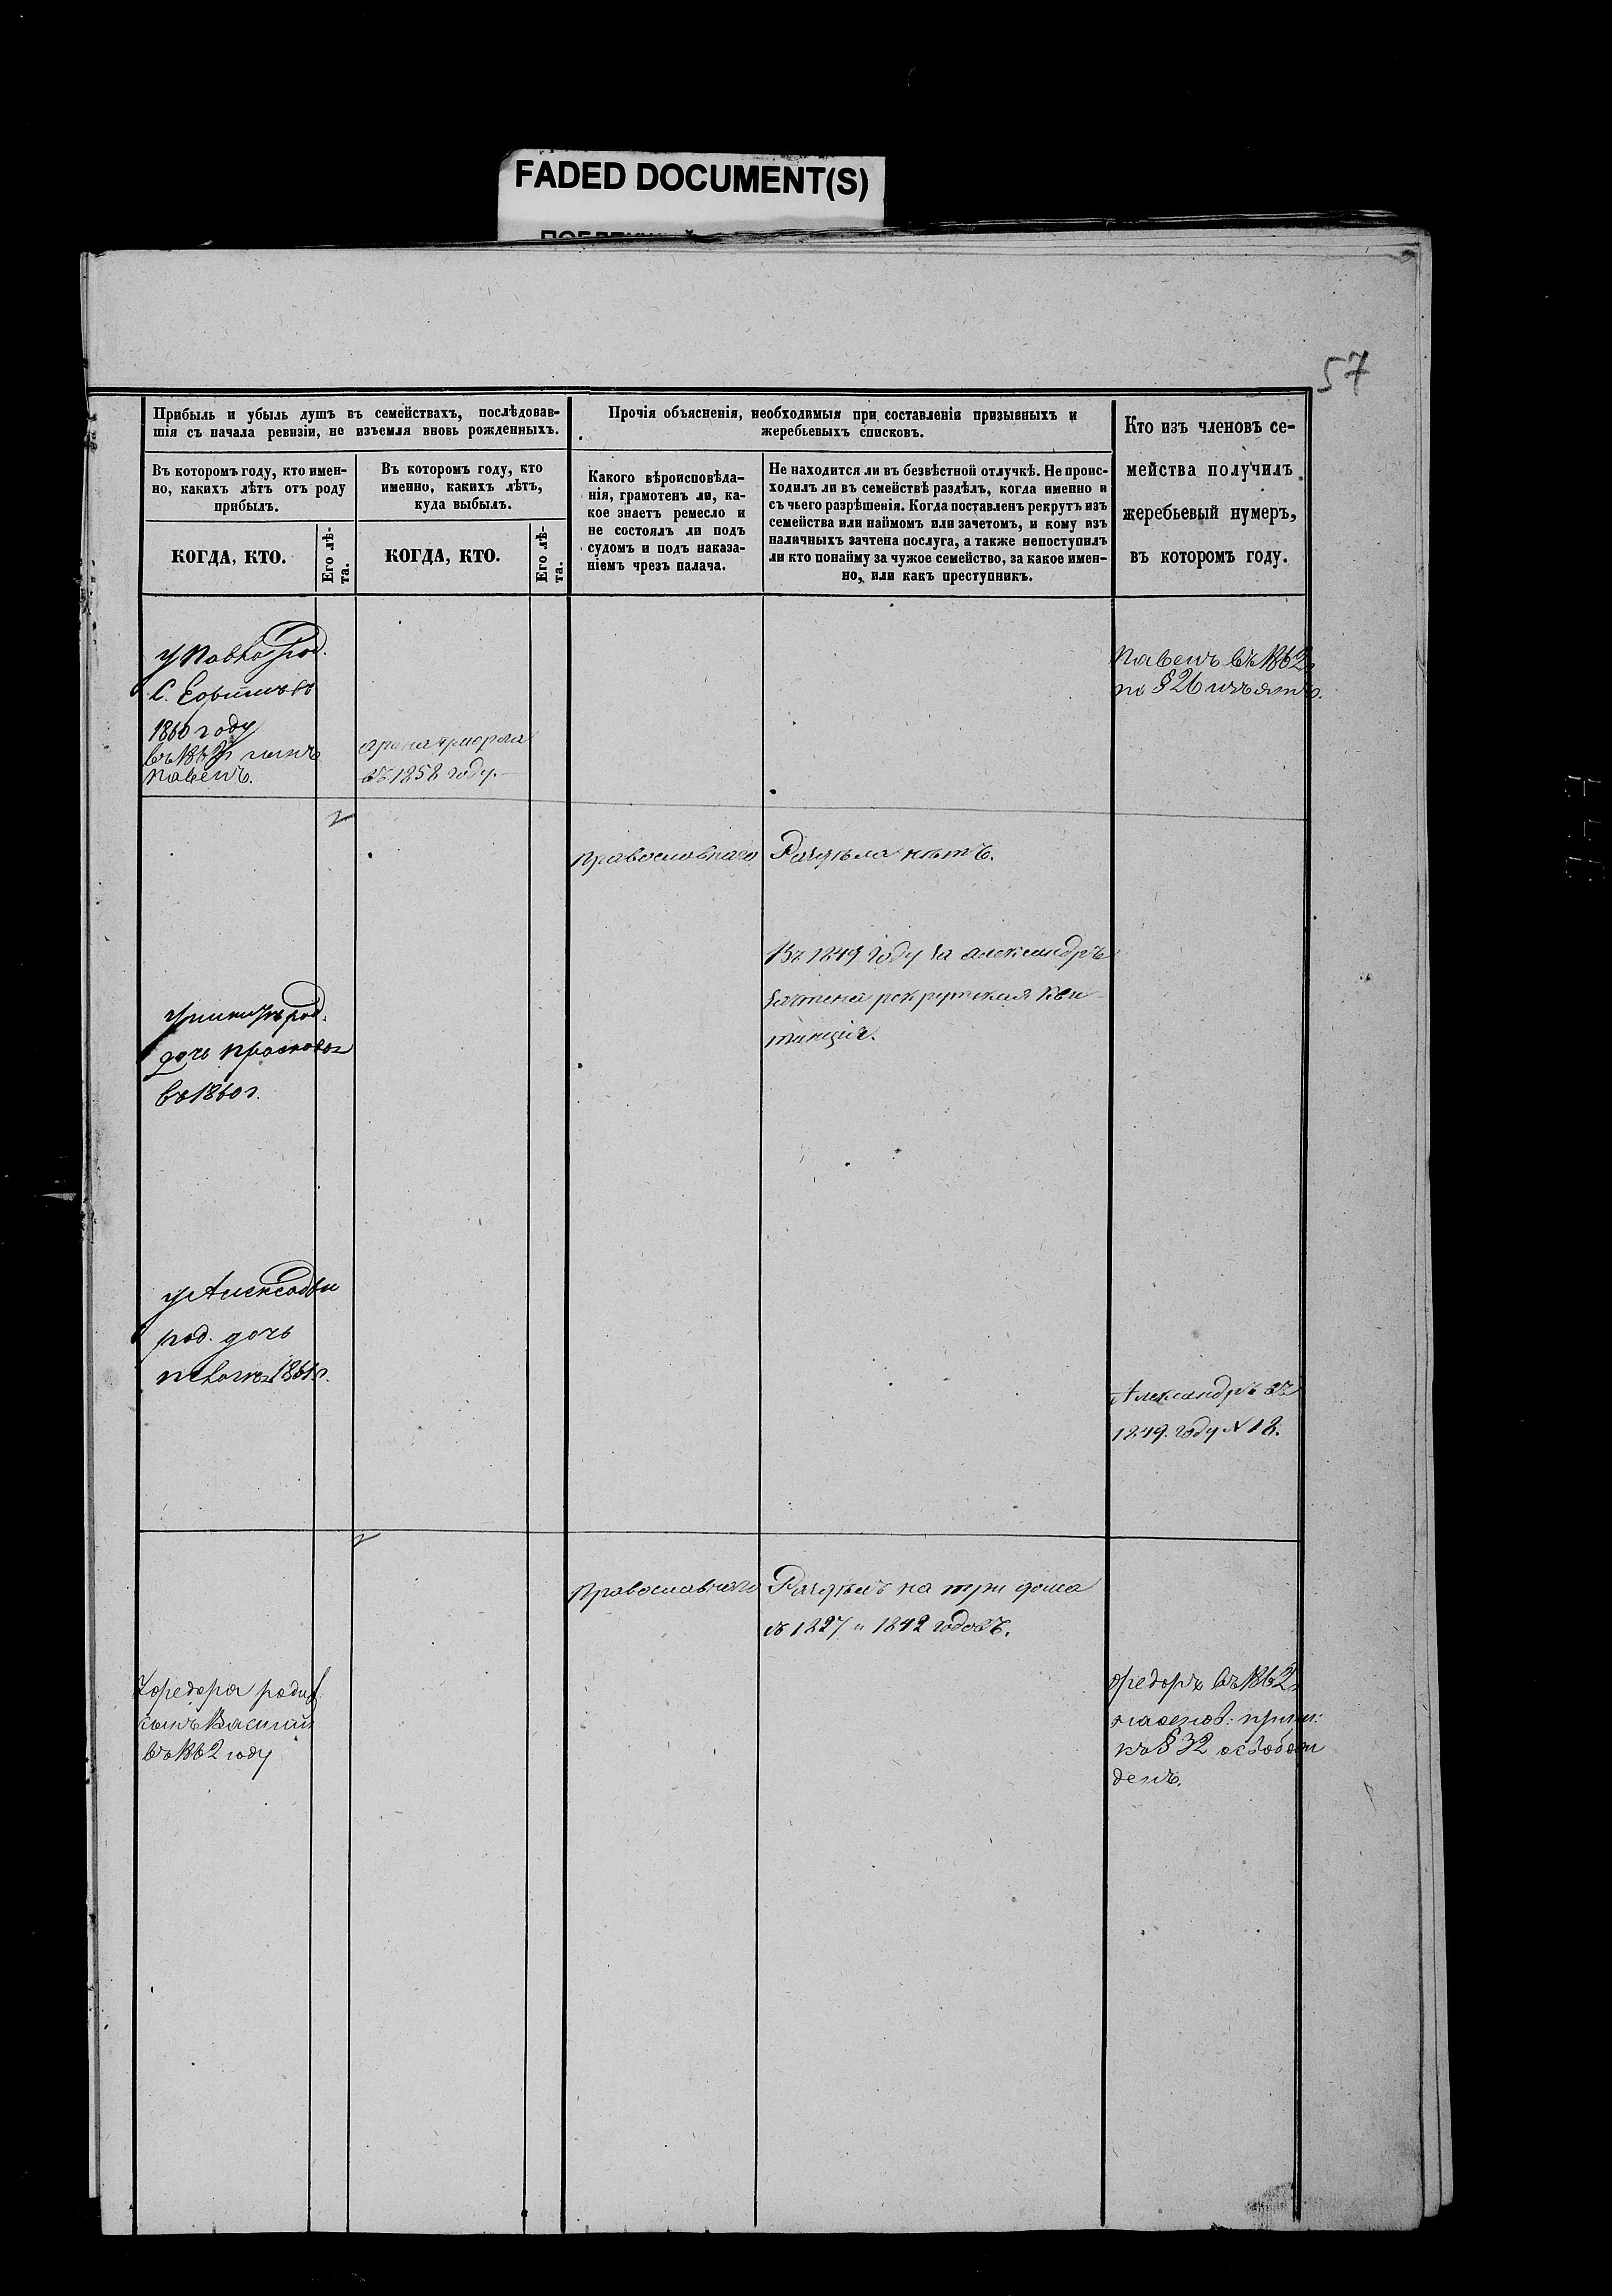 FADED DOCUMENT(S)
57
Прибыль и убыль душъ въ семействахъ, послѣдовав-
шія съ начала ревизіи, не изъемля вновь рожденныхъ.
Въ которомъ году, кто имен-
но, какихъ лѣтъ отъ роду
прибылъ.
КОГДА, КТО.
Его лѣ-
та.
Въ которомъ году, кто
именно, какихъ лѣтъ,
куда выбылъ.
КОГДА, КТО.
Его лѣ-
та.
Прочія объясненія, необходимыя при составленіи призывныхъ и
жеребьевыхъ списковъ.
Какого вѣроисповѣда-
нія, грамотенъ ли, ка-
кое знаетъ ремесло и
не состоялъ ли подъ
судомъ и подъ наказа-
ніемъ чрезъ палача.
Не находится ли въ безвѣстной отлучкѣ. Не проис-
ходилъ ли въ семействѣ раздѣлъ, когда именно и
съ чьего разрѣшенія. Когда поставленъ рекрутъ изъ
семейства или наймомъ или зачетомъ, и кому изъ
наличныхъ зачтена послуга, а также непоступилъ
ли кто понайму за чужое семейство, за какое имен-
но, или какъ преступникъ.
Кто изъ членовъ се-
мейства получилъ
жеребьевый нумеръ,
въ которомъ году.
У Павла род.
С.
1860 году
въ 1862 г сынъ
Павелъ.
умерла
въ 1858 году.
Павелъ въ 1862 г
по § 26 изъятъ.
Православнаго
Раздѣла нѣтъ.
Въ 1849 году за Александръ
зачтена рекрутская кви-
танція.
род.
дочь Прасковья
въ 1860 г.
род. дочь
1861 г.
Александръ въ
1849. году N 18.
Православнаго
Раздѣлъ на три дома
съ 1827 и 1842 годовъ.
У Федора родил
сынъ Василий
въ 1862 году
Федоръ въ 1862 г
къ § 32 освобож
денъ.